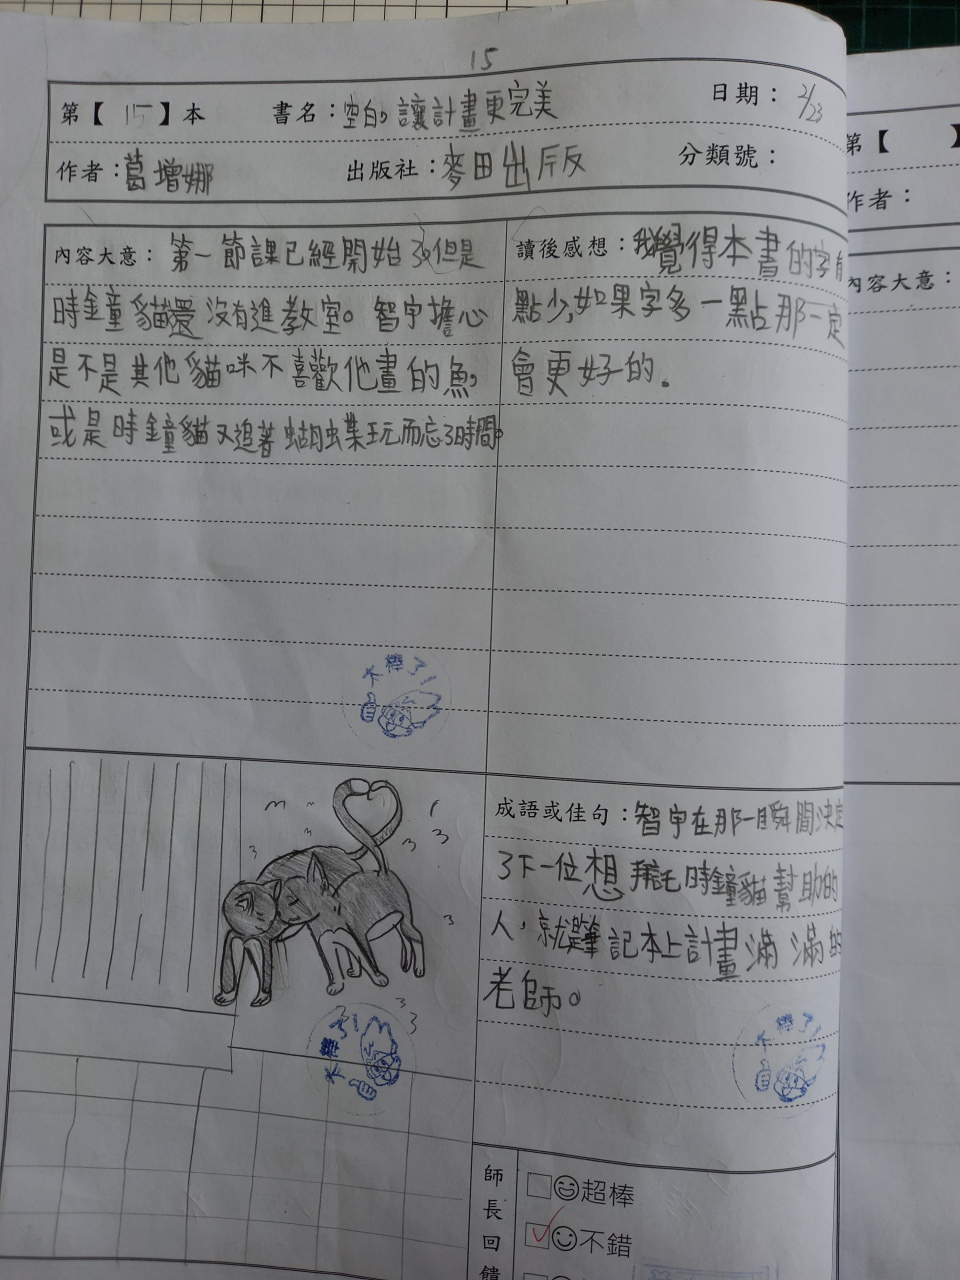 15
第【 15 】本 書名：空白，讓計畫更完美 日期：2/23
作者：葛增娜 出版社：麥田出版 分類號：
內容大意：第一節課已經開始了，但是
時鐘貓還沒有進教室。智宇擔心
是不是其他貓咪不喜歡他畫的魚，
或是時鐘貓又追著蝴蝶玩而忘了時間。
讀後感想：我覺得本書的字有
點少，如果字多一點那一定
會更好的。
太棒了！
成語或佳句：智宇在那一瞬間決定
了下一位想拜託時鐘貓幫助的
人，就是筆記本上計畫滿滿的
老師。
太棒了！
太棒了！
師長回饋
超棒
不錯
第【 】
作者：
內容大意：